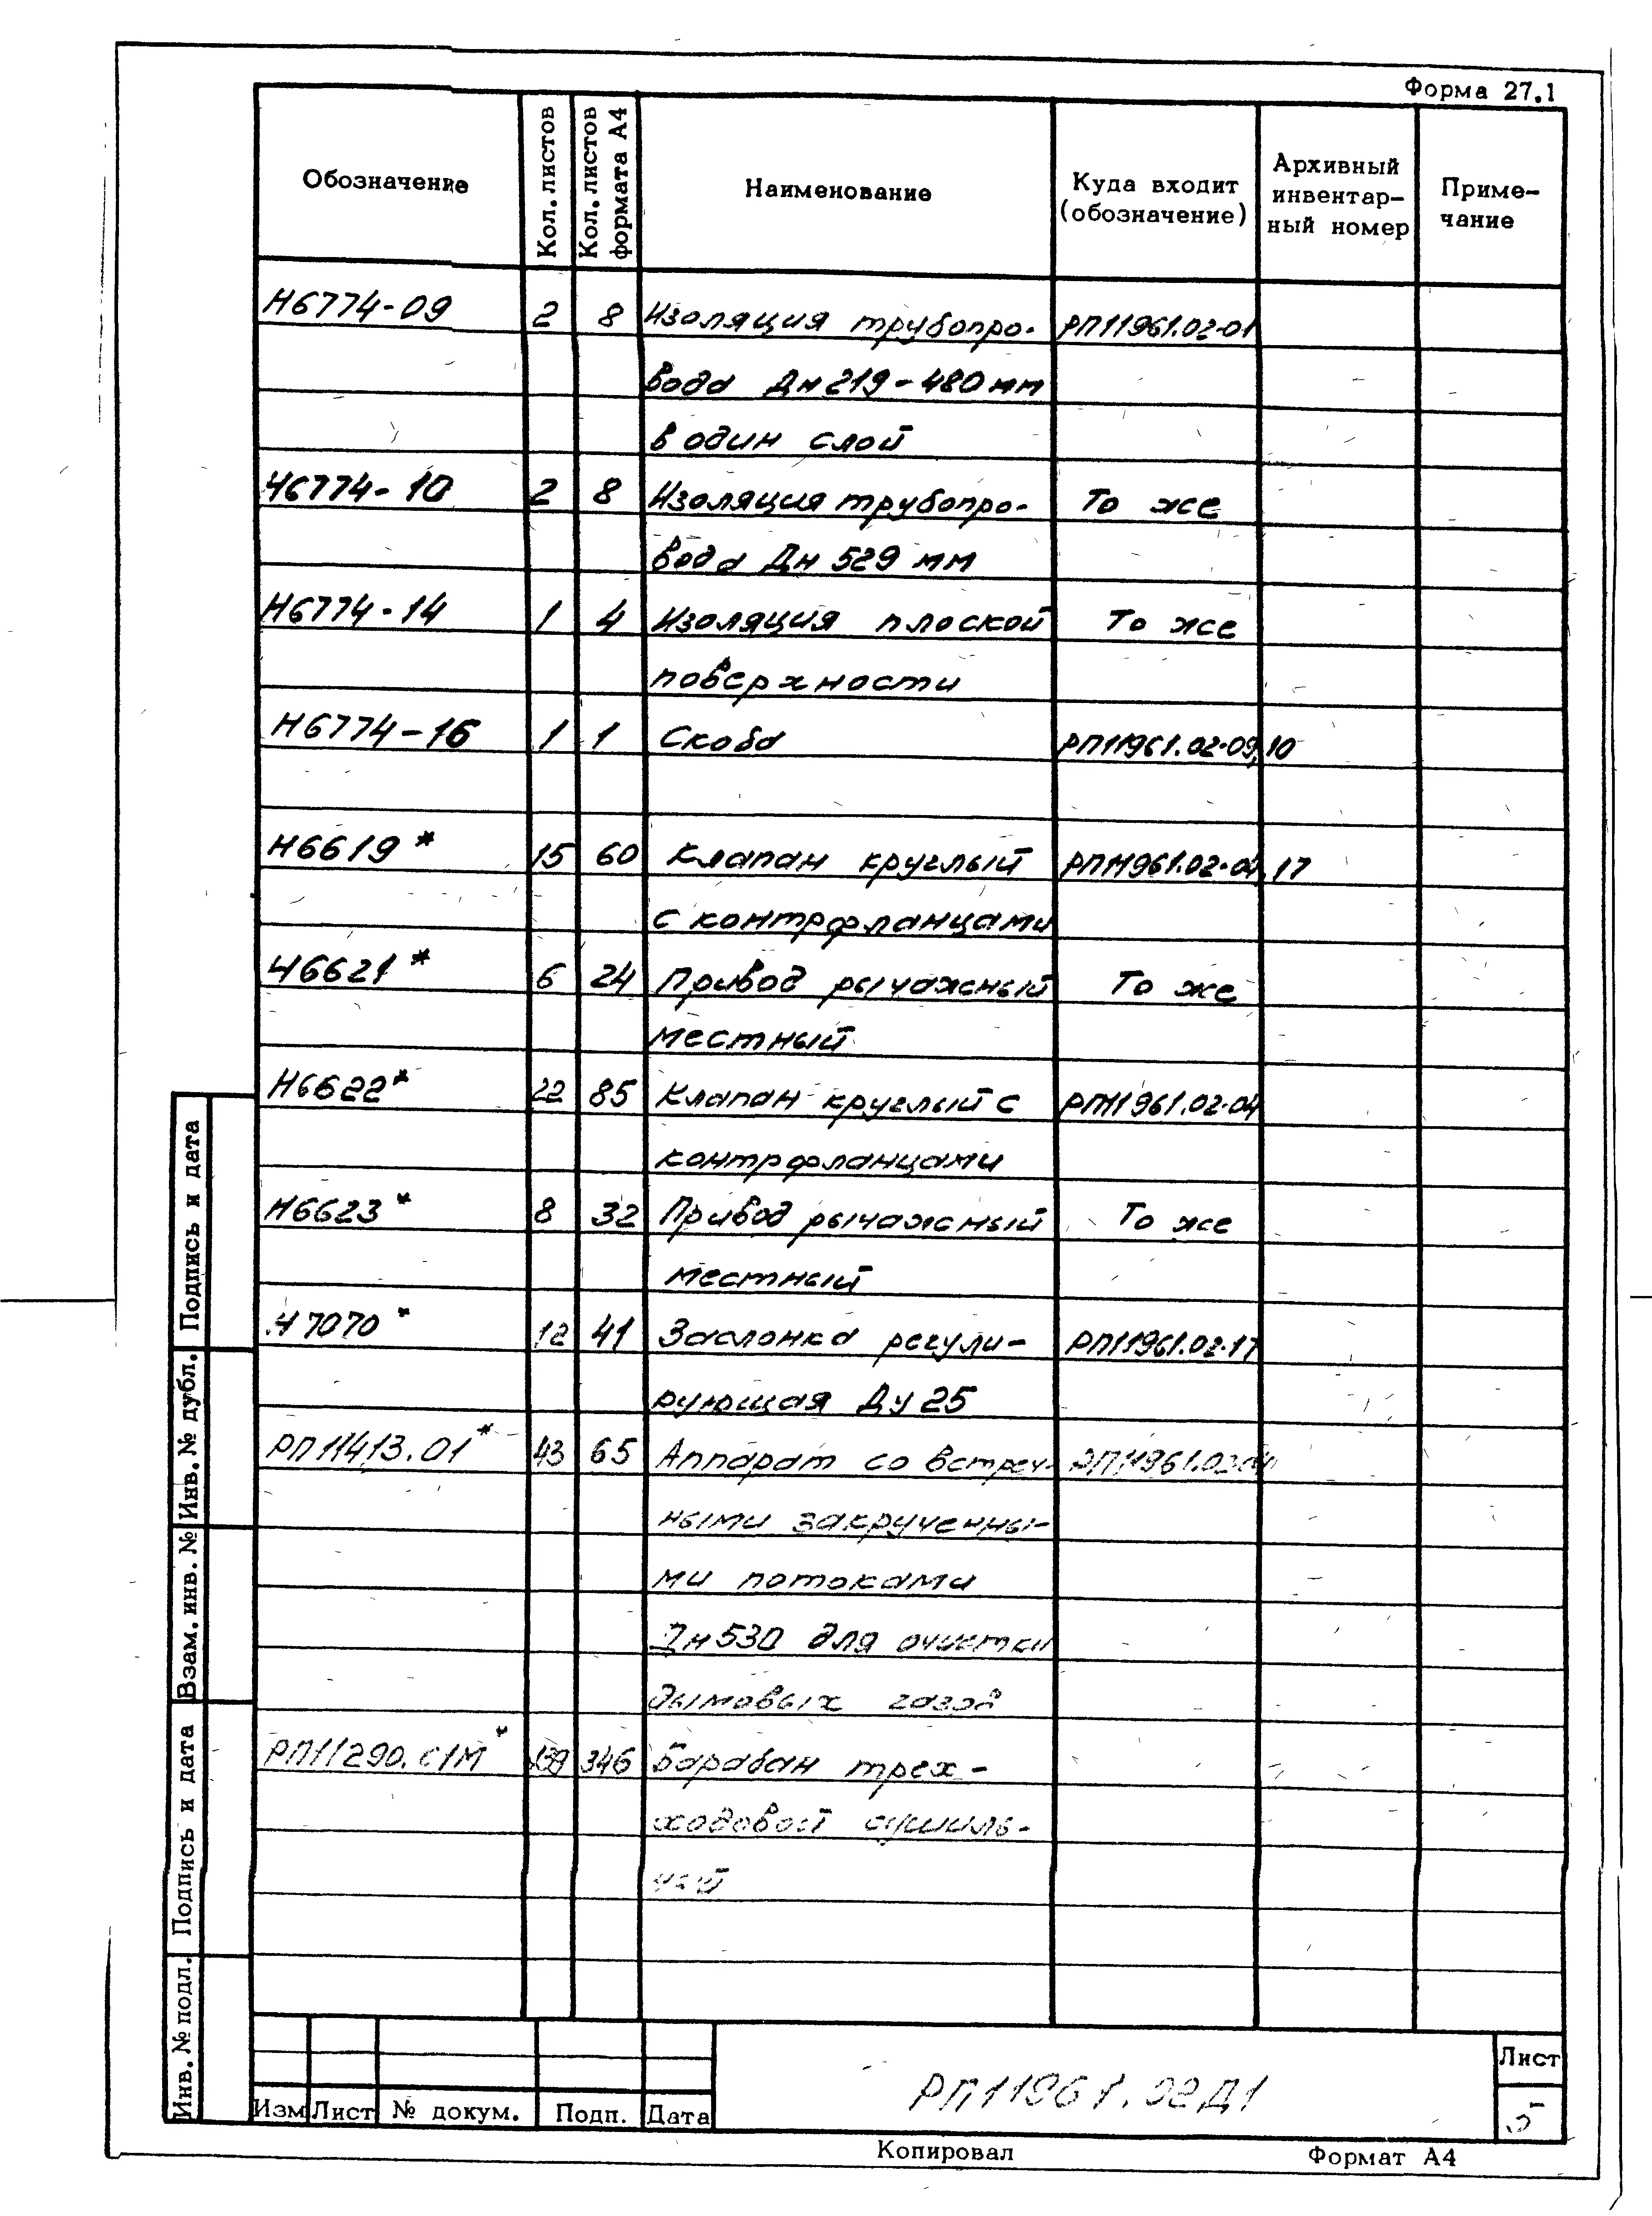 Форма 27.1
Обозначение Кол. листов Кол. листов формата А4 Наименование Куда входит (обозначение) Архивный инвентар- ный номер Приме- чание
Н6774-09 2 8 Изоляция трубопро- РП11961.02-01
вода Дн 219-480 мм
в один слой
Н6774-10 2 8 Изоляция трубопро- То же
вода Дн 529 мм
Н6774-14 1 4 Изоляция плоской То же
поверхности
Н6774-16 1 1 Скоба РП11961.02-09,10
Н6619* 15 60 Клапан круглый РП11961.02-04,17
с контрфланцами
Н6621* 6 24 Привод рычажный То же
местный
Н6622* 22 85 Клапан круглый с РП11961.02-04
контрфланцами
Н6623* 8 32 Привод рычажный То же
местный
Н7070* 12 41 Заслонка регули- РП11961.02-17
рующая Ду 25
РП11413.01* 43 65 Аппарат со встреч- РП11961.02-04
ными закрученны-
ми потоками
Дн 530 для очистки
дымовых газов
РП11290.С1М* 346 Барабан трех-
ходовой сушиль-
ный
Подпись и дата
Инв. № дубл.
Взам. инв. №
Подпись и дата
Инв. № подл.
Изм Лист № докум. Подп. Дата
РП11961.02Д1
Лист
5
Копировал Формат А4